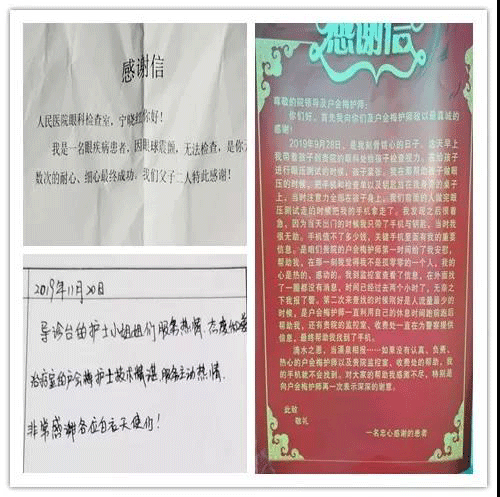 感谢信
人民医院眼科检查室，宁晓红你好！
我是一名眼疾病患者，因眼球震颤，无法检查，是你
数次的耐心、细心最终成功。我们父子二人特此感谢！
2019年11月20日
导诊台的护士小姐姐们服务热情、态度
治疗室的户会梅护士技术精湛、服务主动热情.
非常感谢各位白衣天使们！
感谢信
尊敬的院领导及户会梅护师：
你们好，首先我向你们及户会梅护师致以最真诚的
感谢！
2019年9月28日，是我刻骨铭心的日子。这天早上
我带着孩子到贵院的眼科处给孩子检查视力。在给孩子
进行眼压测试的时候，孩子紧张。我在那帮助孩子做眼
压的时候，把手机和检查单以及钥匙站在我身旁的桌子
上，当时注意力全部在孩子身上。我们前面的人做完眼
压测试走的时候把我的手机拿走了。我发现之后很着
急，因为当天出门的时候我只带了手机与钥匙，当时我
很无助。手机值不了多少钱，关键手机里面有我的重要
信息。是咱们贵院的户会梅护师第一时间给了我安慰，
帮助我，在那一刻我觉得我不是孤零零的一个人，我的
心是热的，感动的。我到监控室查看了信息，在外面找
了一圈都没有消息，时间已经过去两个小时了，无奈之
下我报了警。第二次来查找的时候刚好是人流量最少的
时候，是户会梅护师一直利用自己的休息时间跑前跑后
帮助我，还有贵院的监控室、收费处一直在为警察提供
信息，最终帮助我找到了手机。
滴水之恩，当涌泉相报……如果没有认真、负责、
热心的户会梅护师以及贵院监控室、收费处的帮助，我
的手机就不会找到。对大家的帮助我感激不尽，特别是
向户会梅护师再一次表示深深的谢意。
此致
敬礼
一名忠心感谢的患者